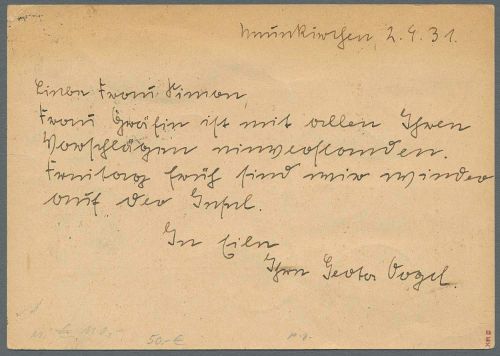 Neunkirchen, 2.4.31.
Liebe Frau Simon,
Frau Gräfin ist mit allen Ihren
Vorschlägen einverstanden.
Freitag früh sind wir wieder
auf der Insel.
In Eile
Ihre Gerta Vogel.
50.-€